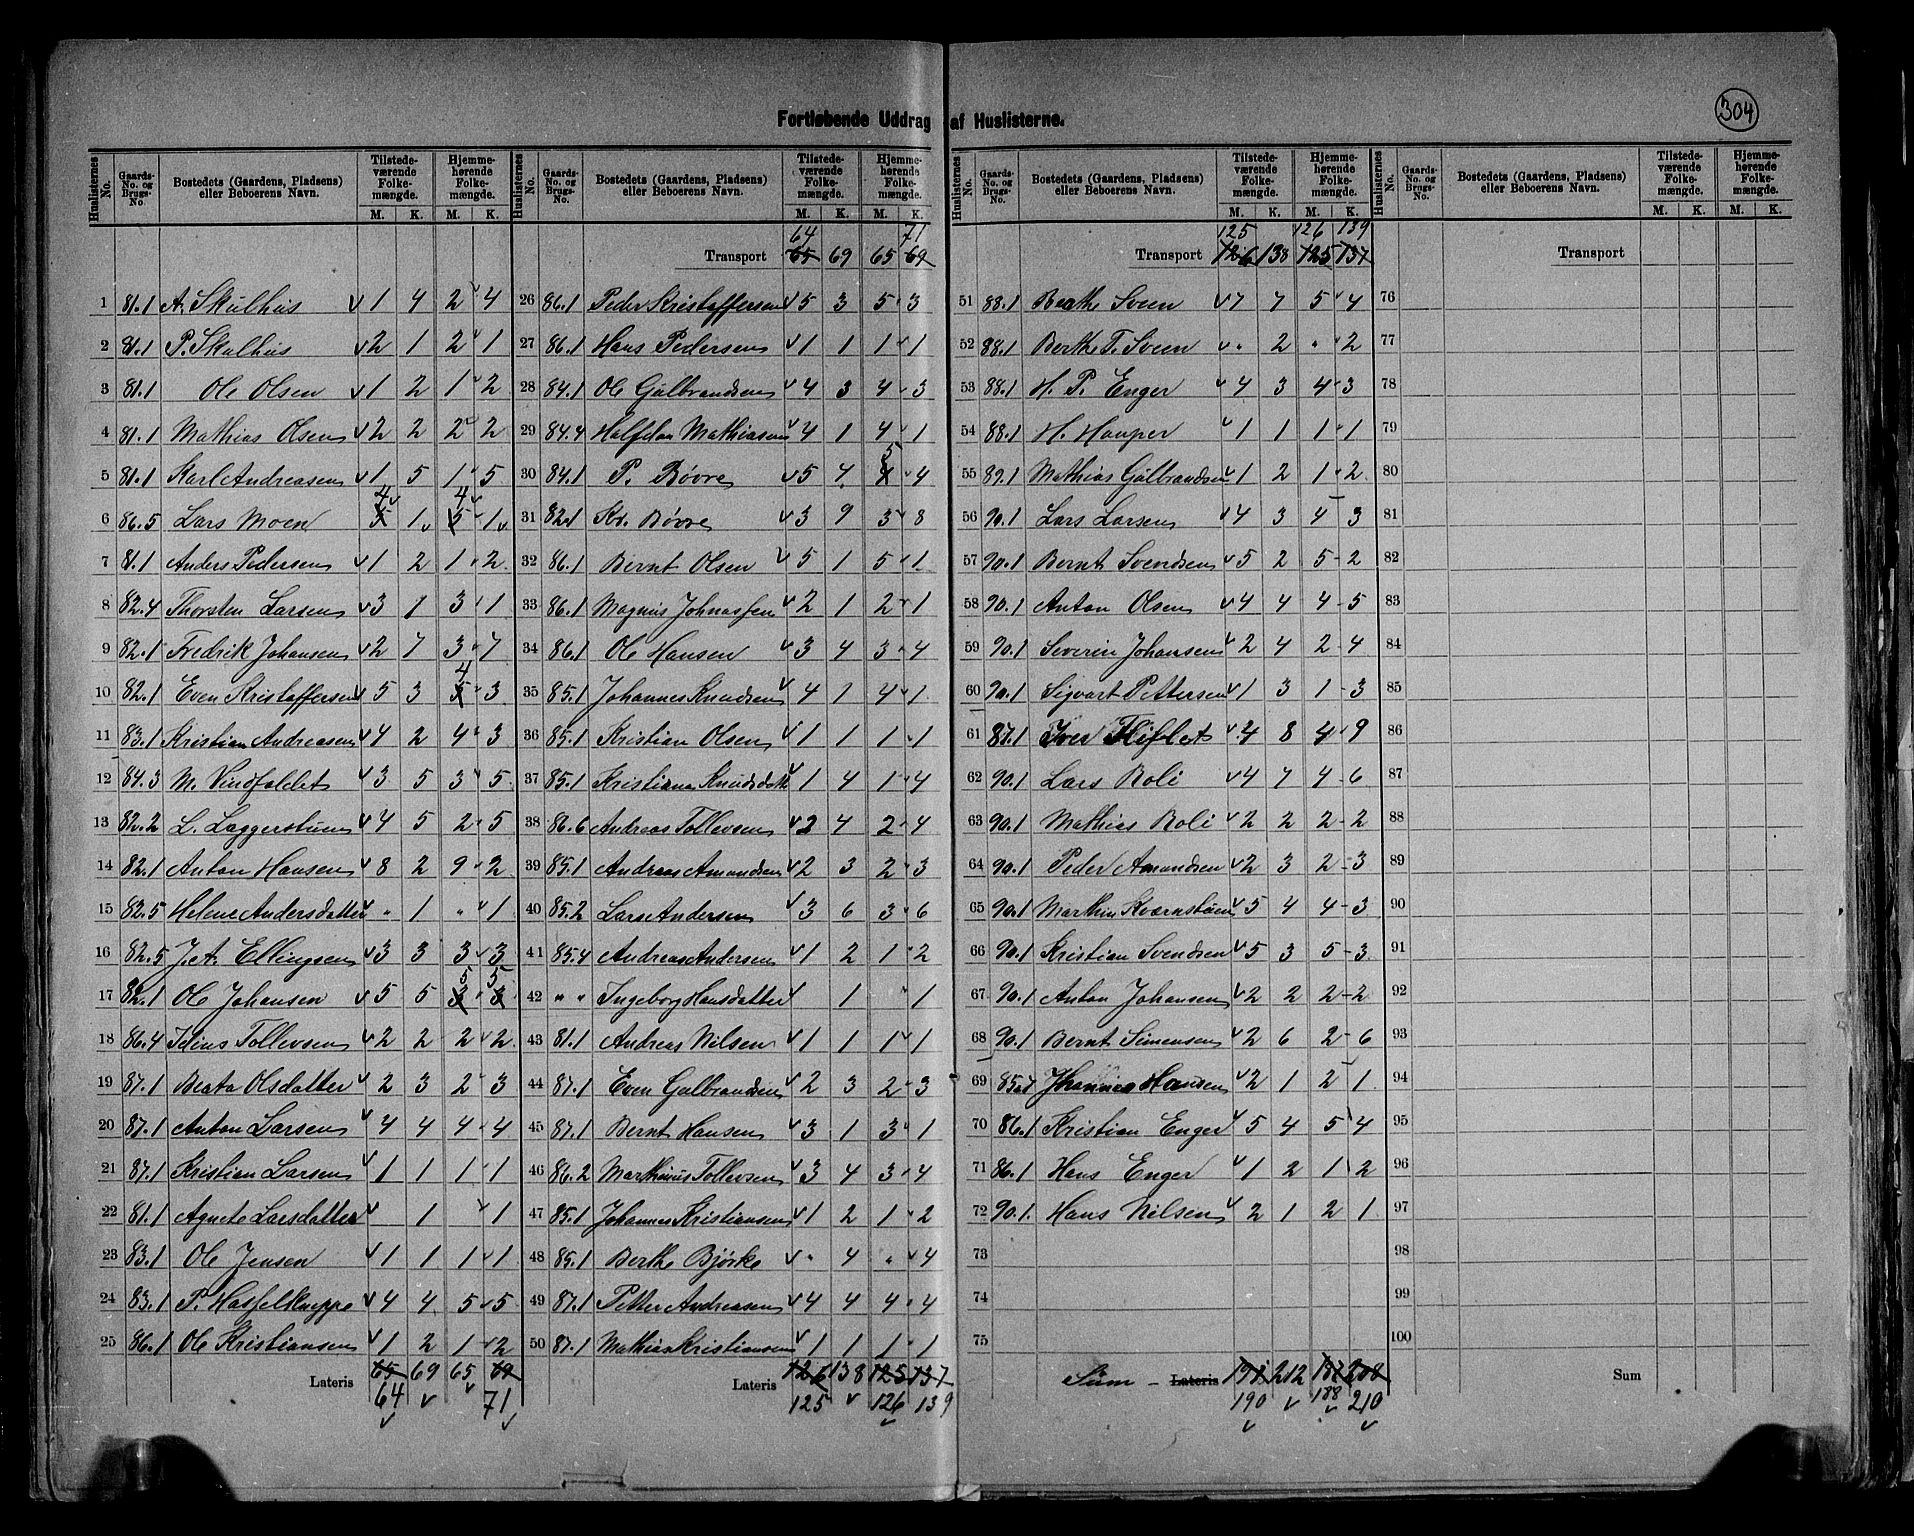 304
Fortløbende Uddrag af Huslisterne.
Huslisternes No. Gaards-No. og Brugs-No. Bostedets (Gaardens, Pladsens) eller Beboerens Navn. Tilstedeværende Folkemængde. M. K. Hjemmehørende Folkemængde. M. K.
1 81.1 A. Skulhus 1 4 2 4
2 81.1 P. Skulhus 2 1 2 1
3 81.1 Ole Olsen 1 2 1 2
4 81.1 Mathias Olsen 2 2 2 2
5 81.1 Karl Andreasen 1 5 1 5
6 86.5 Lars Moen 4 1 4 1
7 81.1 Anders Pedersen 1 2 1 2
8 82.4 Thorsten Larsen 3 1 3 1
9 82.1 Fredrik Johansen 2 7 3 7
10 82.1 Even Kristoffersen 5 3 4 3
11 83.1 Kristian Andreasen 4 2 4 3
12 84.3 M. Vindfaldet 3 5 3 5
13 82.2 L. Laggerstuen 4 5 2 5
14 82.1 Anton Hansen 8 2 9 2
15 82.5 Helene Andersdatter " 1 " 1
16 82.5 J. A. Ellingsen 3 3 3 3
17 82.1 Ole Johansen 5 5 5 5
18 86.4 Julius Tollevsen 2 2 2 2
19 87.1 Beata Olsdatter 2 3 2 3
20 87.1 Anton Larsen 4 4 4 4
21 87.1 Kristian Larsen 1 1 1 1
22 81.1 Agnete Larsdatter 1 1
23 83.1 Ole Jensen 1 1 1 1
24 83.1 P. Hasselknippe 4 4 5 5
25 86.1 Ole Kristiansen 1 2 1 2
Lateris 65 69 65 69
64 71
Huslisternes No. Gaards-No. og Brugs-No. Bostedets (Gaardens, Pladsens) eller Beboerens Navn. Tilstedeværende Folkemængde. M. K. Hjemmehørende Folkemængde. M. K.
64 71
Transport 65 69 65 69
26 86.1 Peder Kristoffersen 5 3 5 3
27 86.1 Hans Pedersen 1 1 1 1
28 84.1 Ole Gulbrandsen 4 3 4 3
29 84.4 Halfdan Mathiasen 4 1 4 1
30 84.1 P. Bøvre 5 4 5 4
31 82.1 Kr. Bøvre 3 9 3 8
32 86.1 Bernt Olsen 5 1 5 1
33 86.1 Magnus Johnassen 2 1 2 1
34 86.1 Ole Hansen 3 4 3 4
35 85.1 Johannes Knudsen 4 1 4 1
36 85.1 Kristian Olsen 1 1 1 1
37 85.1 Kristiana Knudsdatt 1 4 1 4
38 86.6 Andreas Tollevsen 2 4 2 4
39 85.1 Andreas Amundsen 2 3 2 3
40 85.2 Lars Andersen 3 6 3 6
41 85.4 Andreas Andersen 1 2 1 2
42 " " Ingeborg Hansdatter 1 " 1
43 81.1 Andreas Nilsen 1 1 1 1
44 87.1 Even Gulbrandsen 2 3 2 3
45 87.1 Bernt Hansen 3 1 3 1
46 86.2 Marthinus Tollevsen 3 4 3 4
47 85.1 Johannes Kristiansen 1 2 1 2
48 85.1 Berthe Bjørke " 4 " 4
49 87.1 Petter Andreasen 4 4 4 4
50 87.1 Mathias Kristiansen 1 1 1 1
Lateris 126 138 125 137
125 126 139
Huslisternes No. Gaards-No. og Brugs-No. Bostedets (Gaardens, Pladsens) eller Beboerens Navn. Tilstedeværende Folkemængde. M. K. Hjemmehørende Folkemængde. M. K.
125 126 139
Transport 126 138 125 137
51 88.1 Berthe Sveen 7 7 5 4
52 88.1 Berthe T. Sveen " 2 " 2
53 88.1 H. P. Enger 4 3 4 3
54 88.1 H. Hauper 1 1 1 1
55 89.1 Mathias Gulbrandsen 1 2 1 2
56 90.1 Lars Larsen 4 3 4 3
57 90.1 Bernt Svendsen 5 2 5 2
58 90.1 Anton Olsen 4 4 4 5
59 90.1 Severin Johansen 2 4 2 4
60 90.1 Sigvart Pettersen 1 3 1 3
61 87.1 Iver 4 8 4 9
62 90.1 Lars Boli 4 7 4 6
63 90.1 Mathias Boli 2 2 2 2
64 90.1 Peder Amundsen 2 3 2 3
65 90.1 Marthin Kværnstuen 5 4 4 3
66 90.1 Kristian Svendsen 5 3 5 3
67 90.1 Anton Johansen 2 2 2 2
68 90.1 Bernt Simensen 2 6 2 6
69 85.4 Johannes Hansen 2 1 2 1
70 86.1 Kristian Enger 5 4 5 4
71 86.1 Hans Enger 1 2 1 2
72 90.1. Hans Nilsen 2 1 2 1
73
74
75
Sum Lateris 191 212 187 208
190 188 210
Huslisternes No. Gaards-No. og Brugs-No. Bostedets (Gaardens, Pladsens) eller Beboerens Navn. Tilstedeværende Folkemængde. M. K. Hjemmehørende Folkemængde. M. K.
Transport
76
77
78
79
80
81
82
83
84
85
86
87
88
89
90
91
92
93
94
95
96
97
98
99
100
Sum